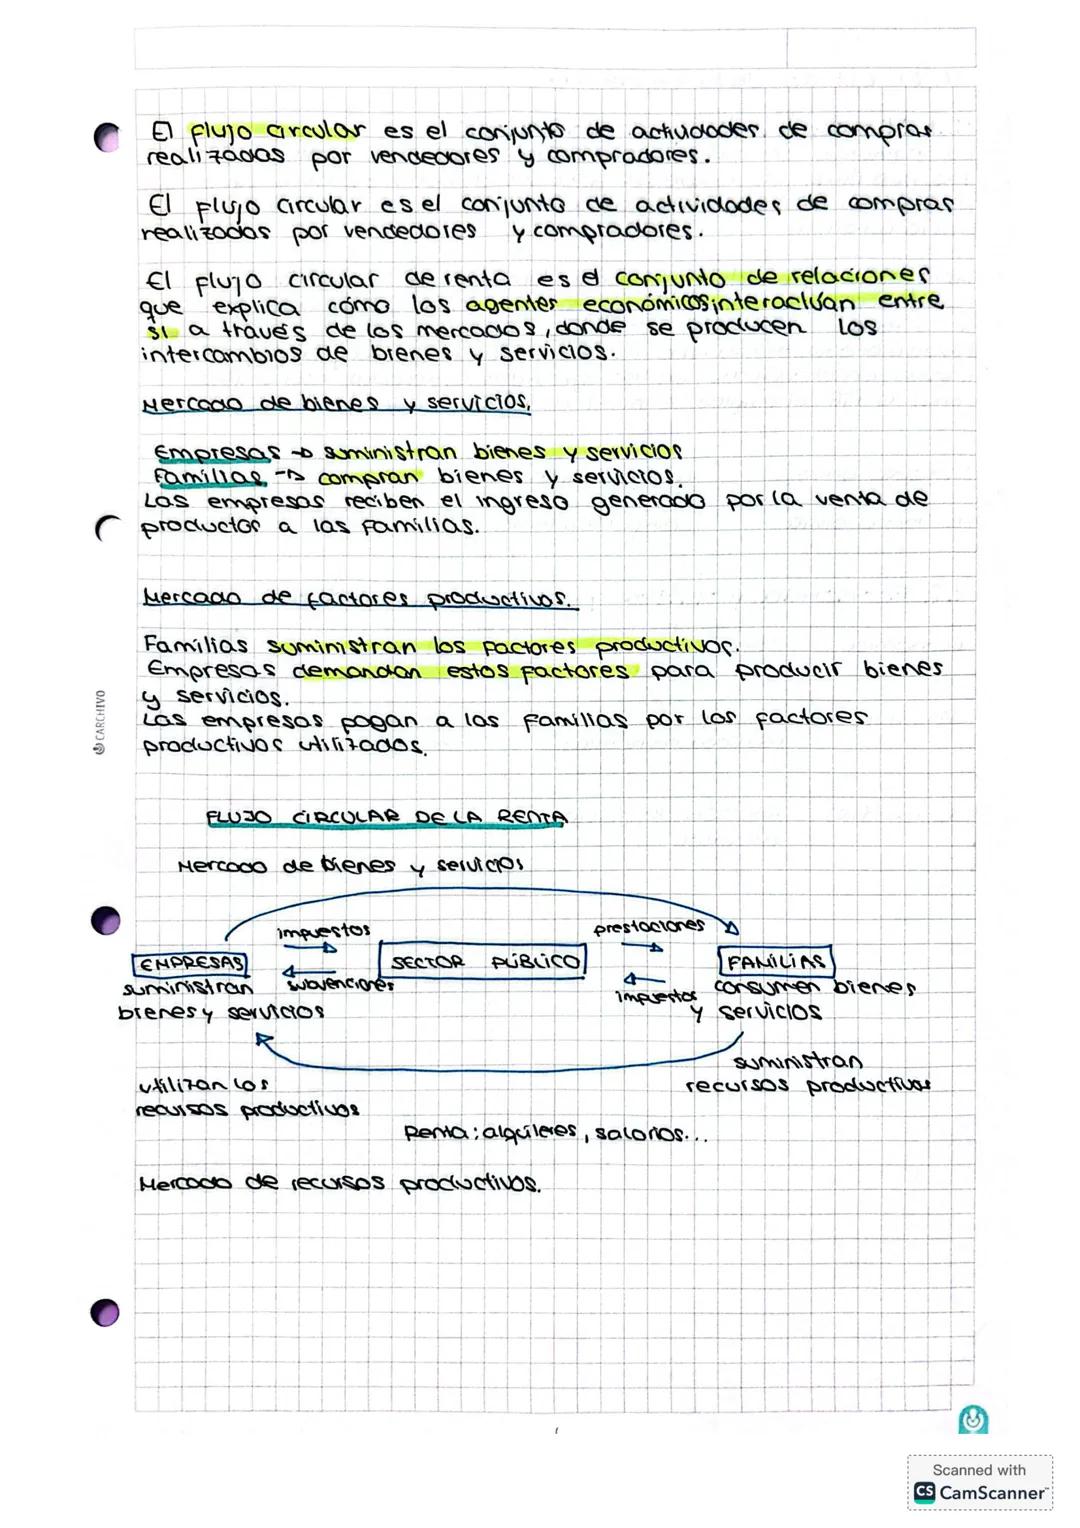 El flujo circular es el conjunto de actividades de compras
realizadas por vendedores y compradores.
El flujo circular es el conjunto de actividades de compras
realizadas por vendedores y compradores.
El flujo circular de renta es el conjunto de relaciones
que explica cómo los agentes económicos interactúan entre
sí a través de los mercados, donde se producen los
intercambios de bienes y servicios.
Mercado de bienes y servicios.
Empresas → suministran bienes y servicios
Familias → compran bienes y servicios.
Las empresas reciben el ingreso generado por la venta de
productos a las familias.
Mercado de factores productivos.
Familias suministran los factores productivos.
Empresas demandan estos factores para producir bienes
y servicios.
Las empresas pagan a las familias por los factores
productivos utilizados.
CARCHIVO
FLUJO CIRCULAR DE LA RENTA
Mercado de bienes y servicios
impuestos
prestaciones
EMPRESAS
SECTOR PÚBLICO
FAMILIAS
suministran
bienes y servicios
subvenciones
impuestos
consumen bienes
y servicios
suministran
recursos productivos
utilizan los
recursos productivos
Renta: alquileres, salarios...
Mercado de recursos productivos.
Scanned with
CS CamScanner